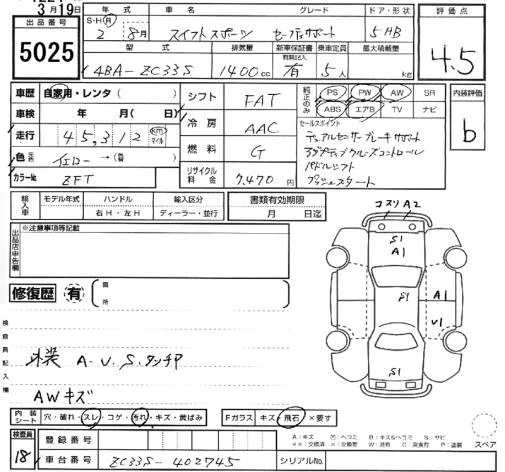 3月19日
出品番号
5025
年式 車名 グレード ドア・形状
S・H・R 2 8月 スイフトスポーツ セーフティサポート 5HB
型式 排気量 新車保証書 乗車定員 最大積載量
4BA-ZC33S 1400cc 有 5人 kg
評価点
4.5
車歴 自家用・レンタ( )
車検 年 月( )
走行 45,312 km マイル
色 イエロー→( )
カラーNo. ZFT
シフト FAT
冷房 AAC
燃料 G
リサイクル料金 7,470円
純正のみ PS PW AW SR
ABS エアB TV ナビ
セールスポイント
デュアルセンサーブレーキサポート
アダプティブクルーズコントロール
パドルシフト
プッシュスタート
内装評価
b
輸入車 モデル年式 ハンドル 輸入区分 書類有効期限
右H・左H ディーラー・並行 月 日迄
出品店申告欄
※注意事項等記載
修復歴 有 箇所
検査員記入欄
コスリ A2
S1
A1
S1
A1
V1
S1
外装 A・U、S、タッチP
AWキズ
内装シート 穴・破れ・スレ・コゲ・汚れ・キズ・黄ばみ Fガラス キズ・飛石・×要す
検査員
18
登録番号
車台番号 ZC33S-402745 シリアルNo.
スペア